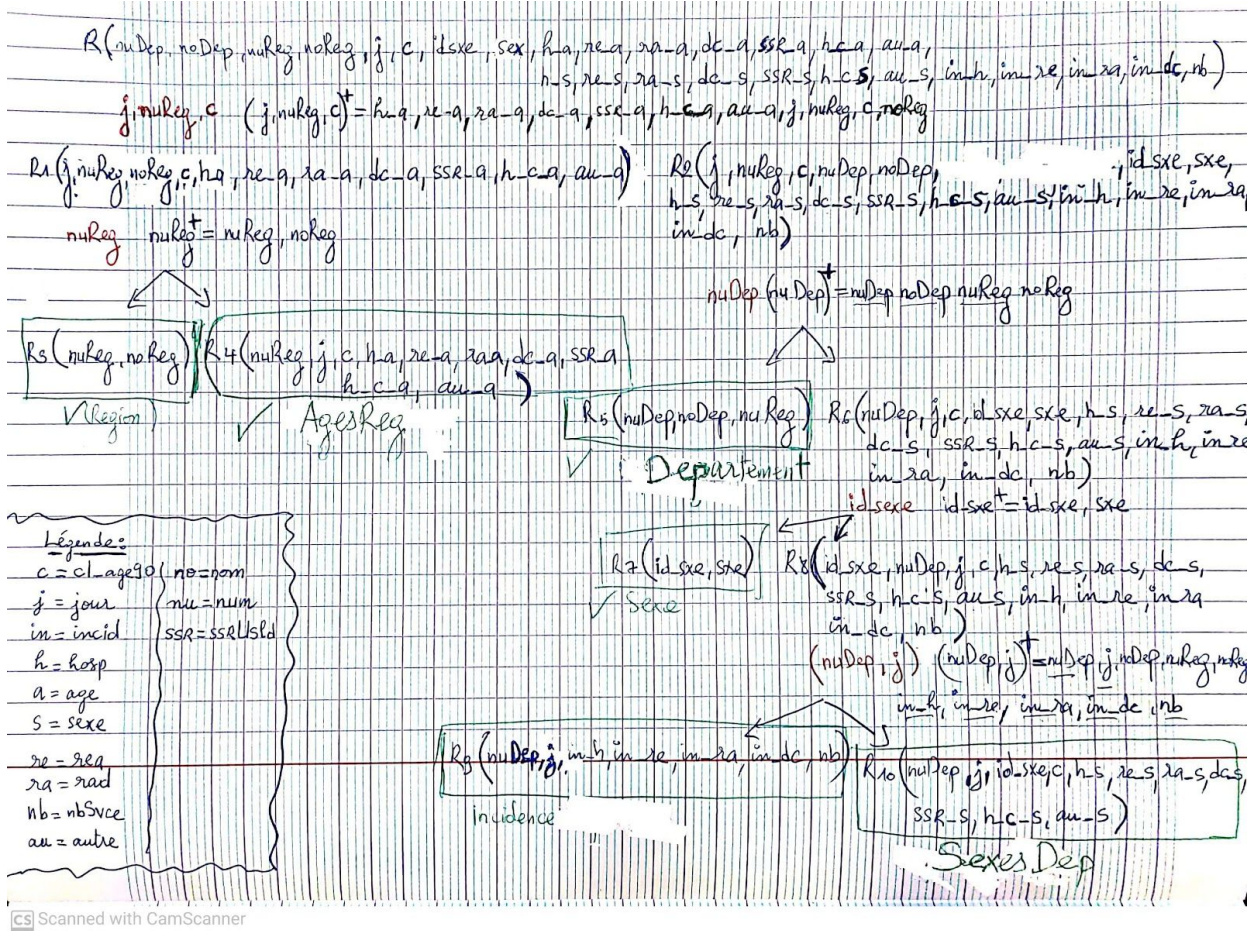 R(nuDep, noDep, nuReg, noReg, j, c, idsxe, sex, h_a, re_a, ra_a, dc_a, SSR_a, h_c_a, au_a,
h_s, re_s, ra_s, dc_s, SSR_s, h_c_s, au_s, in_h, in_re, in_ra, in_dc, nb)
j, nuReg, c (j, nuReg, c)+ = h_a, re_a, ra_a, dc_a, SSR_a, h_c_a, au_a, j, nuReg, c, noReg
R1(j, nuReg, noReg, c, h_a, re_a, ra_a, dc_a, SSR_a, h_c_a, au_a)
R2(j, nuReg, c, nuDep, noDep, , id_sxe, sxe,
h_s, re_s, ra_s, dc_s, SSR_s, h_c_s, au_s, in_h, in_re, in_ra,
in_dc, nb)
nuReg nuReg+ = nuReg, noReg
nuDep (nuDep)+ = nuDep noDep nuReg noReg
R3(nuReg, noReg)
R4(nuReg, j, c, h_a, re_a, ra_a, dc_a, SSR_a
h_c_a, au_a)
✓ Region
✓ AgesReg
R5(nuDep, noDep, nuReg)
✓ Departement
R6(nuDep, j, c, id_sxe, sxe, h_s, re_s, ra_s,
dc_s, SSR_s, h_c_s, au_s, in_h, in_re
in_ra, in_dc, nb)
id_sexe id_sxe+ = id_sxe, sxe
R7(id_sxe, sxe)
✓ Sexe
R8(id_sxe, nuDep, j, c, h_s, re_s, ra_s, dc_s,
SSR_s, h_c_s, au_s, in_h, in_re, in_ra
in_dc, nb)
(nuDep, j) (nuDep, j)+ = nuDep, j, noDep, nuReg, noReg
in_h, in_re, in_ra, in_dc, nb
R9(nuDep, j, in_h, in_re, in_ra, in_dc, nb)
incidence
R10(nuDep, j, id_sxe, c, h_s, re_s, ra_s, dc_s,
SSR_s, h_c_s, au_s)
SexesDep
Légende:
c = cl_age90 no = nom
j = jour nu = num
in = incid SSR = SSRUsld
h = hosp
a = age
s = sexe
re = rea
ra = rad
nb = nbSvce
au = autre
CS Scanned with CamScanner